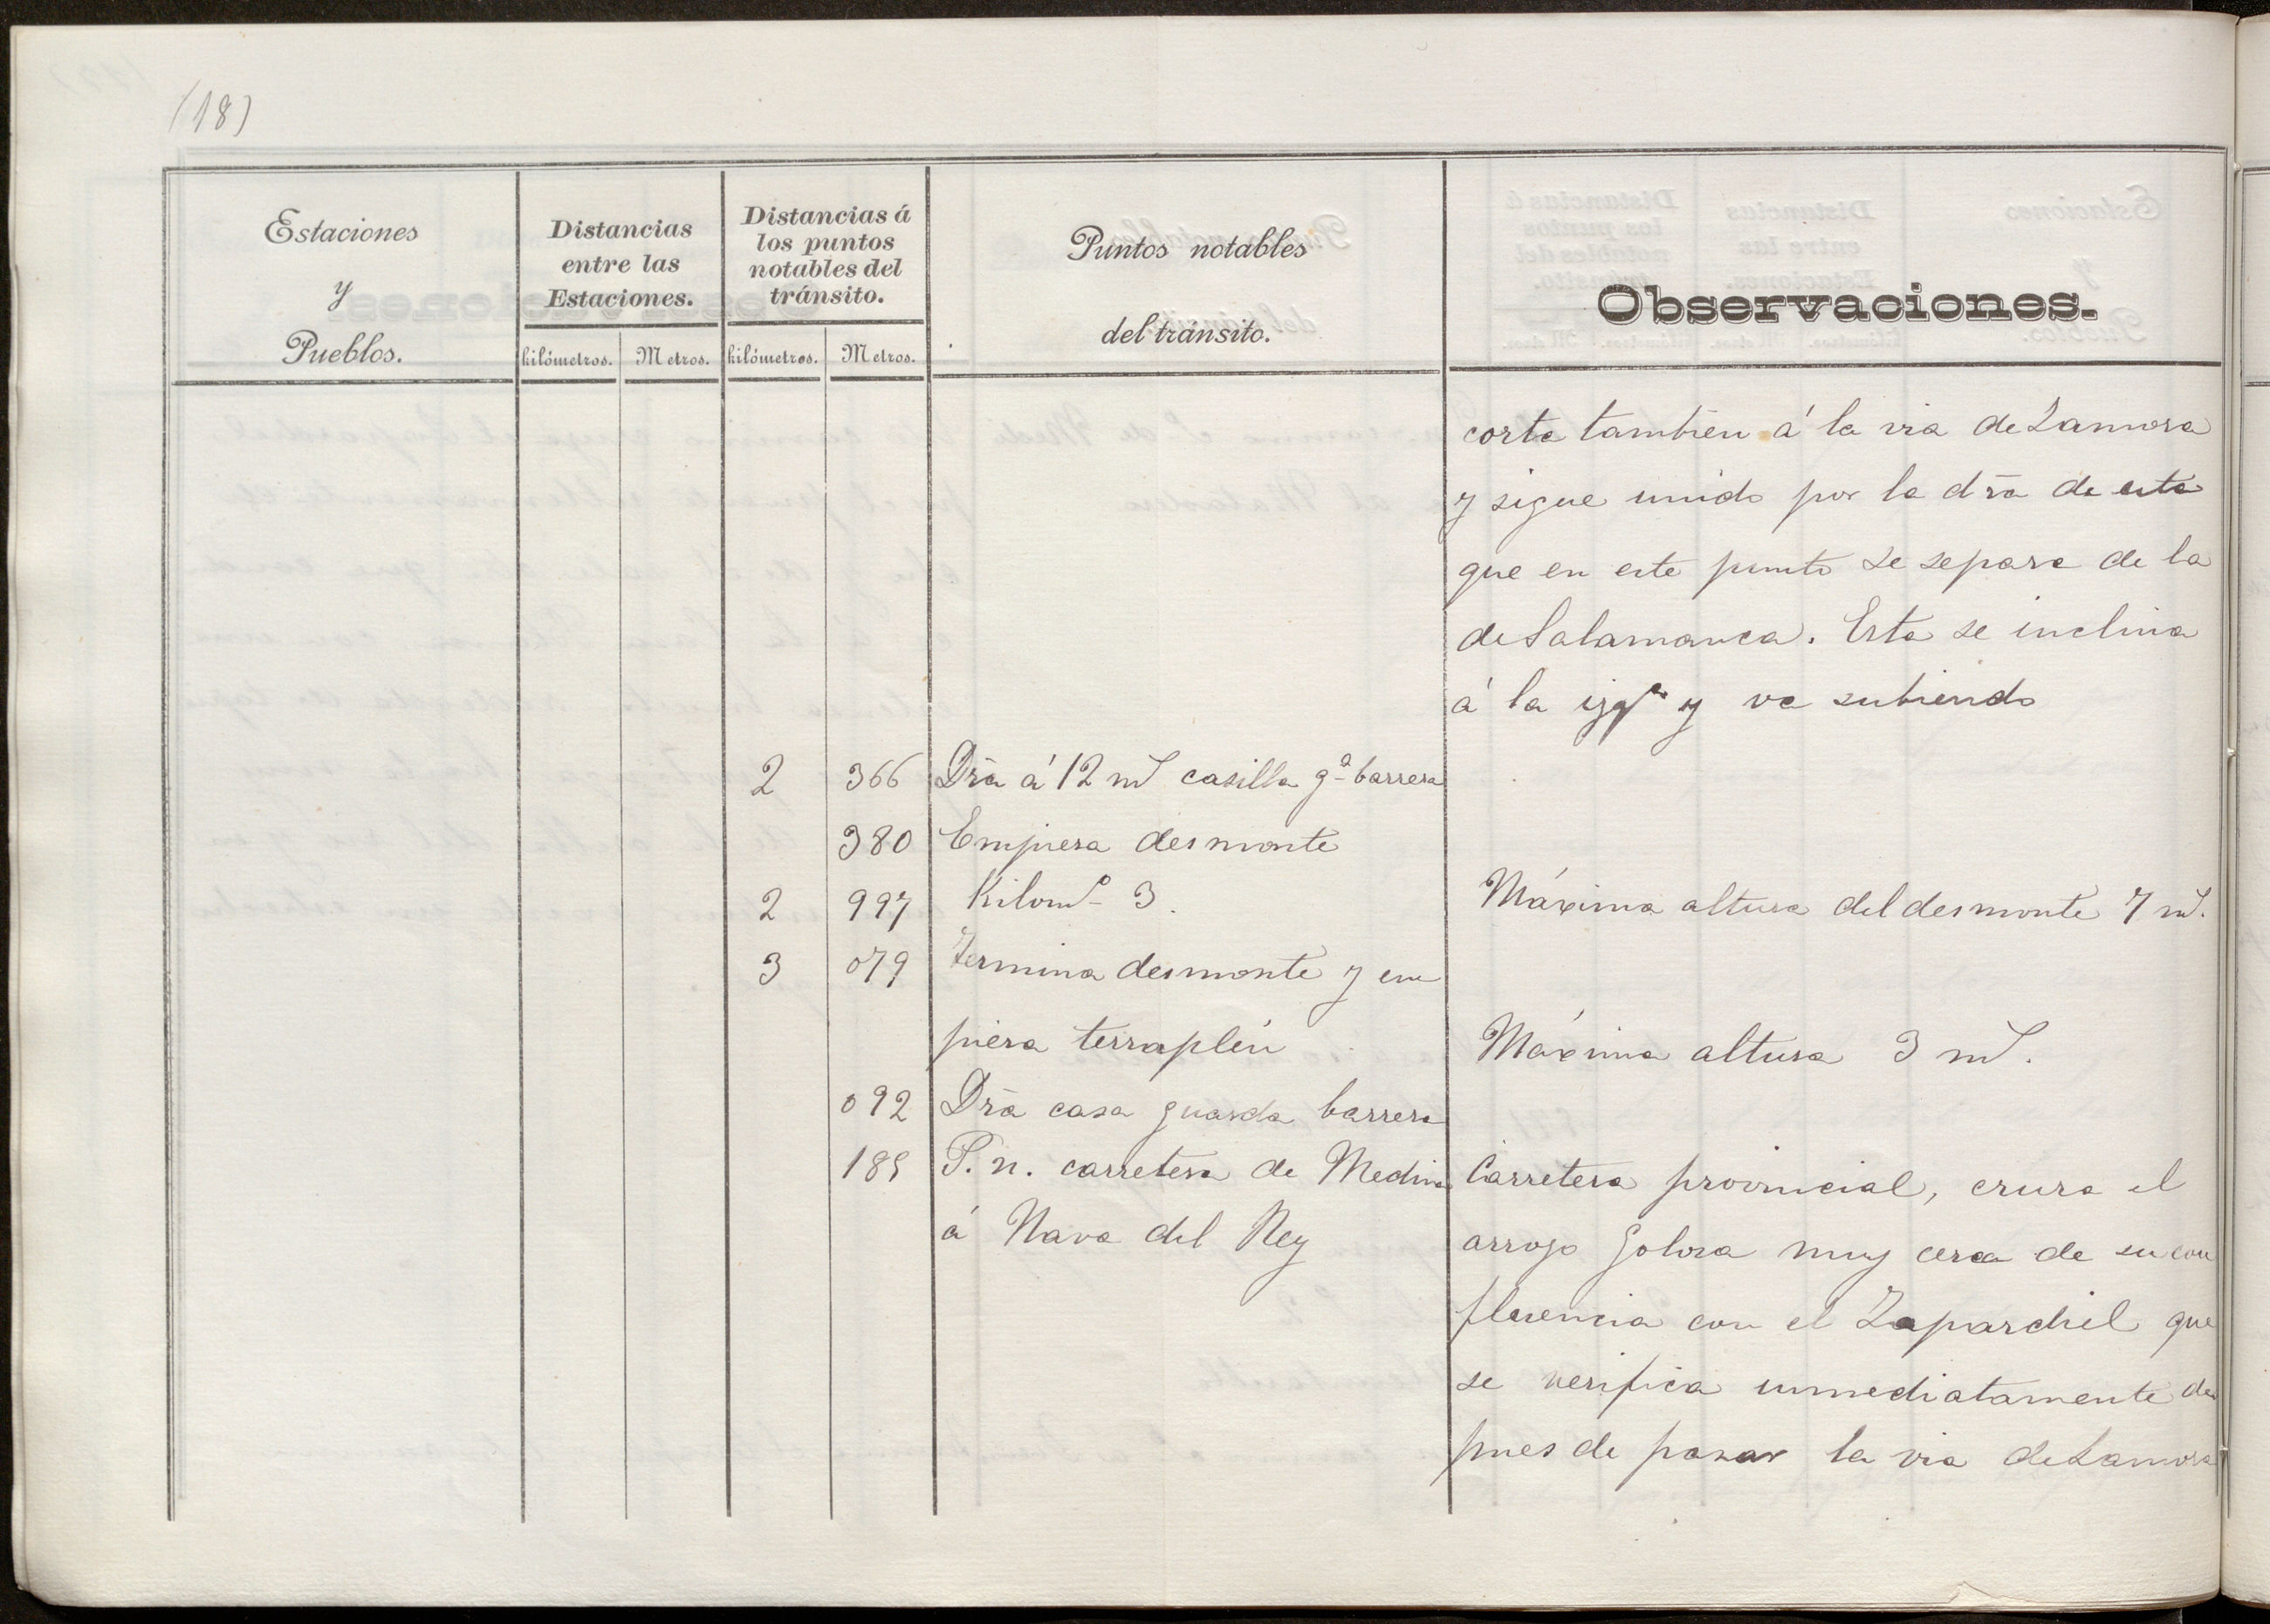 (18)
Estaciones
y
Pueblos.
Distancias
entre las
Estaciones.
kilómetros. Metros.
Distancias á
los puntos
notables del
tránsito.
kilómetros. Metros.
Puntos notables
del tránsito.
Observaciones.
corta tambien á la via de Zamora
y sigue unido por la dr̃a de esta
que en este punto se separa de la
de Salamanca. Esta se inclina
á la izqª y va subiendo
2 366 Dr̃a á 12 mˢ casilla gª barrera
380 Empieza desmonte
2 997 Kilomº 3. Máxima altura del desmonte 7 mˢ.
3 079 Termina desmonte y em
pieza terraplén Máxima altura 3 mˢ.
092 Dr̃a casa guarda barrera
185 P. n. carretera de Medina Carretera provincial, cruza el
á Nava del Rey arroyo Golosa muy cerca de su con
fluencia con el Zapardiel que
se verifica inmediatamente des
pues de pasar la via de Zamora